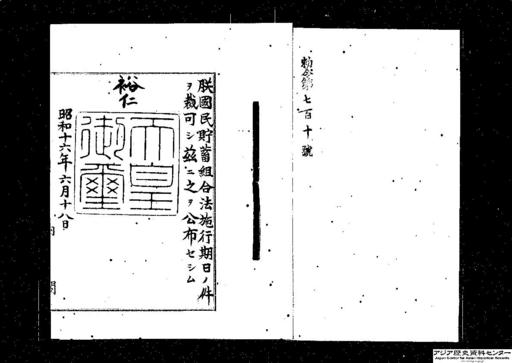 勅令第七百十號
朕國民貯蓄組合法施行期日ノ件
ヲ裁可シ茲ニ之ヲ公布セシム
裕仁
天皇
御璽
昭和十六年六月十八日
内閣
アジア歴史資料センター
Japan Center for Asian Historical Records